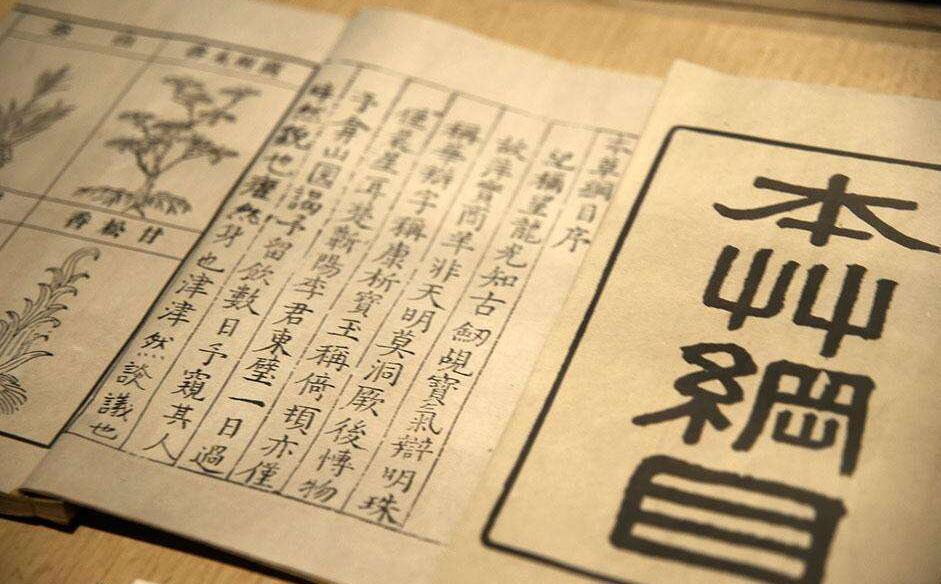 本艸綱目
本草綱目序
紀稱望龍光知古劒覘寶氣辯明珠
故萍實商羊非天明莫洞厥後愽物
稱華辯字稱康析寶玉稱倚頓亦僅
僅晨星耳楚蘄陽李君東璧一日過
予弇山園謁予留飲數日予窺其人
睟然貌也癯然身也津津然談議也
甘松香